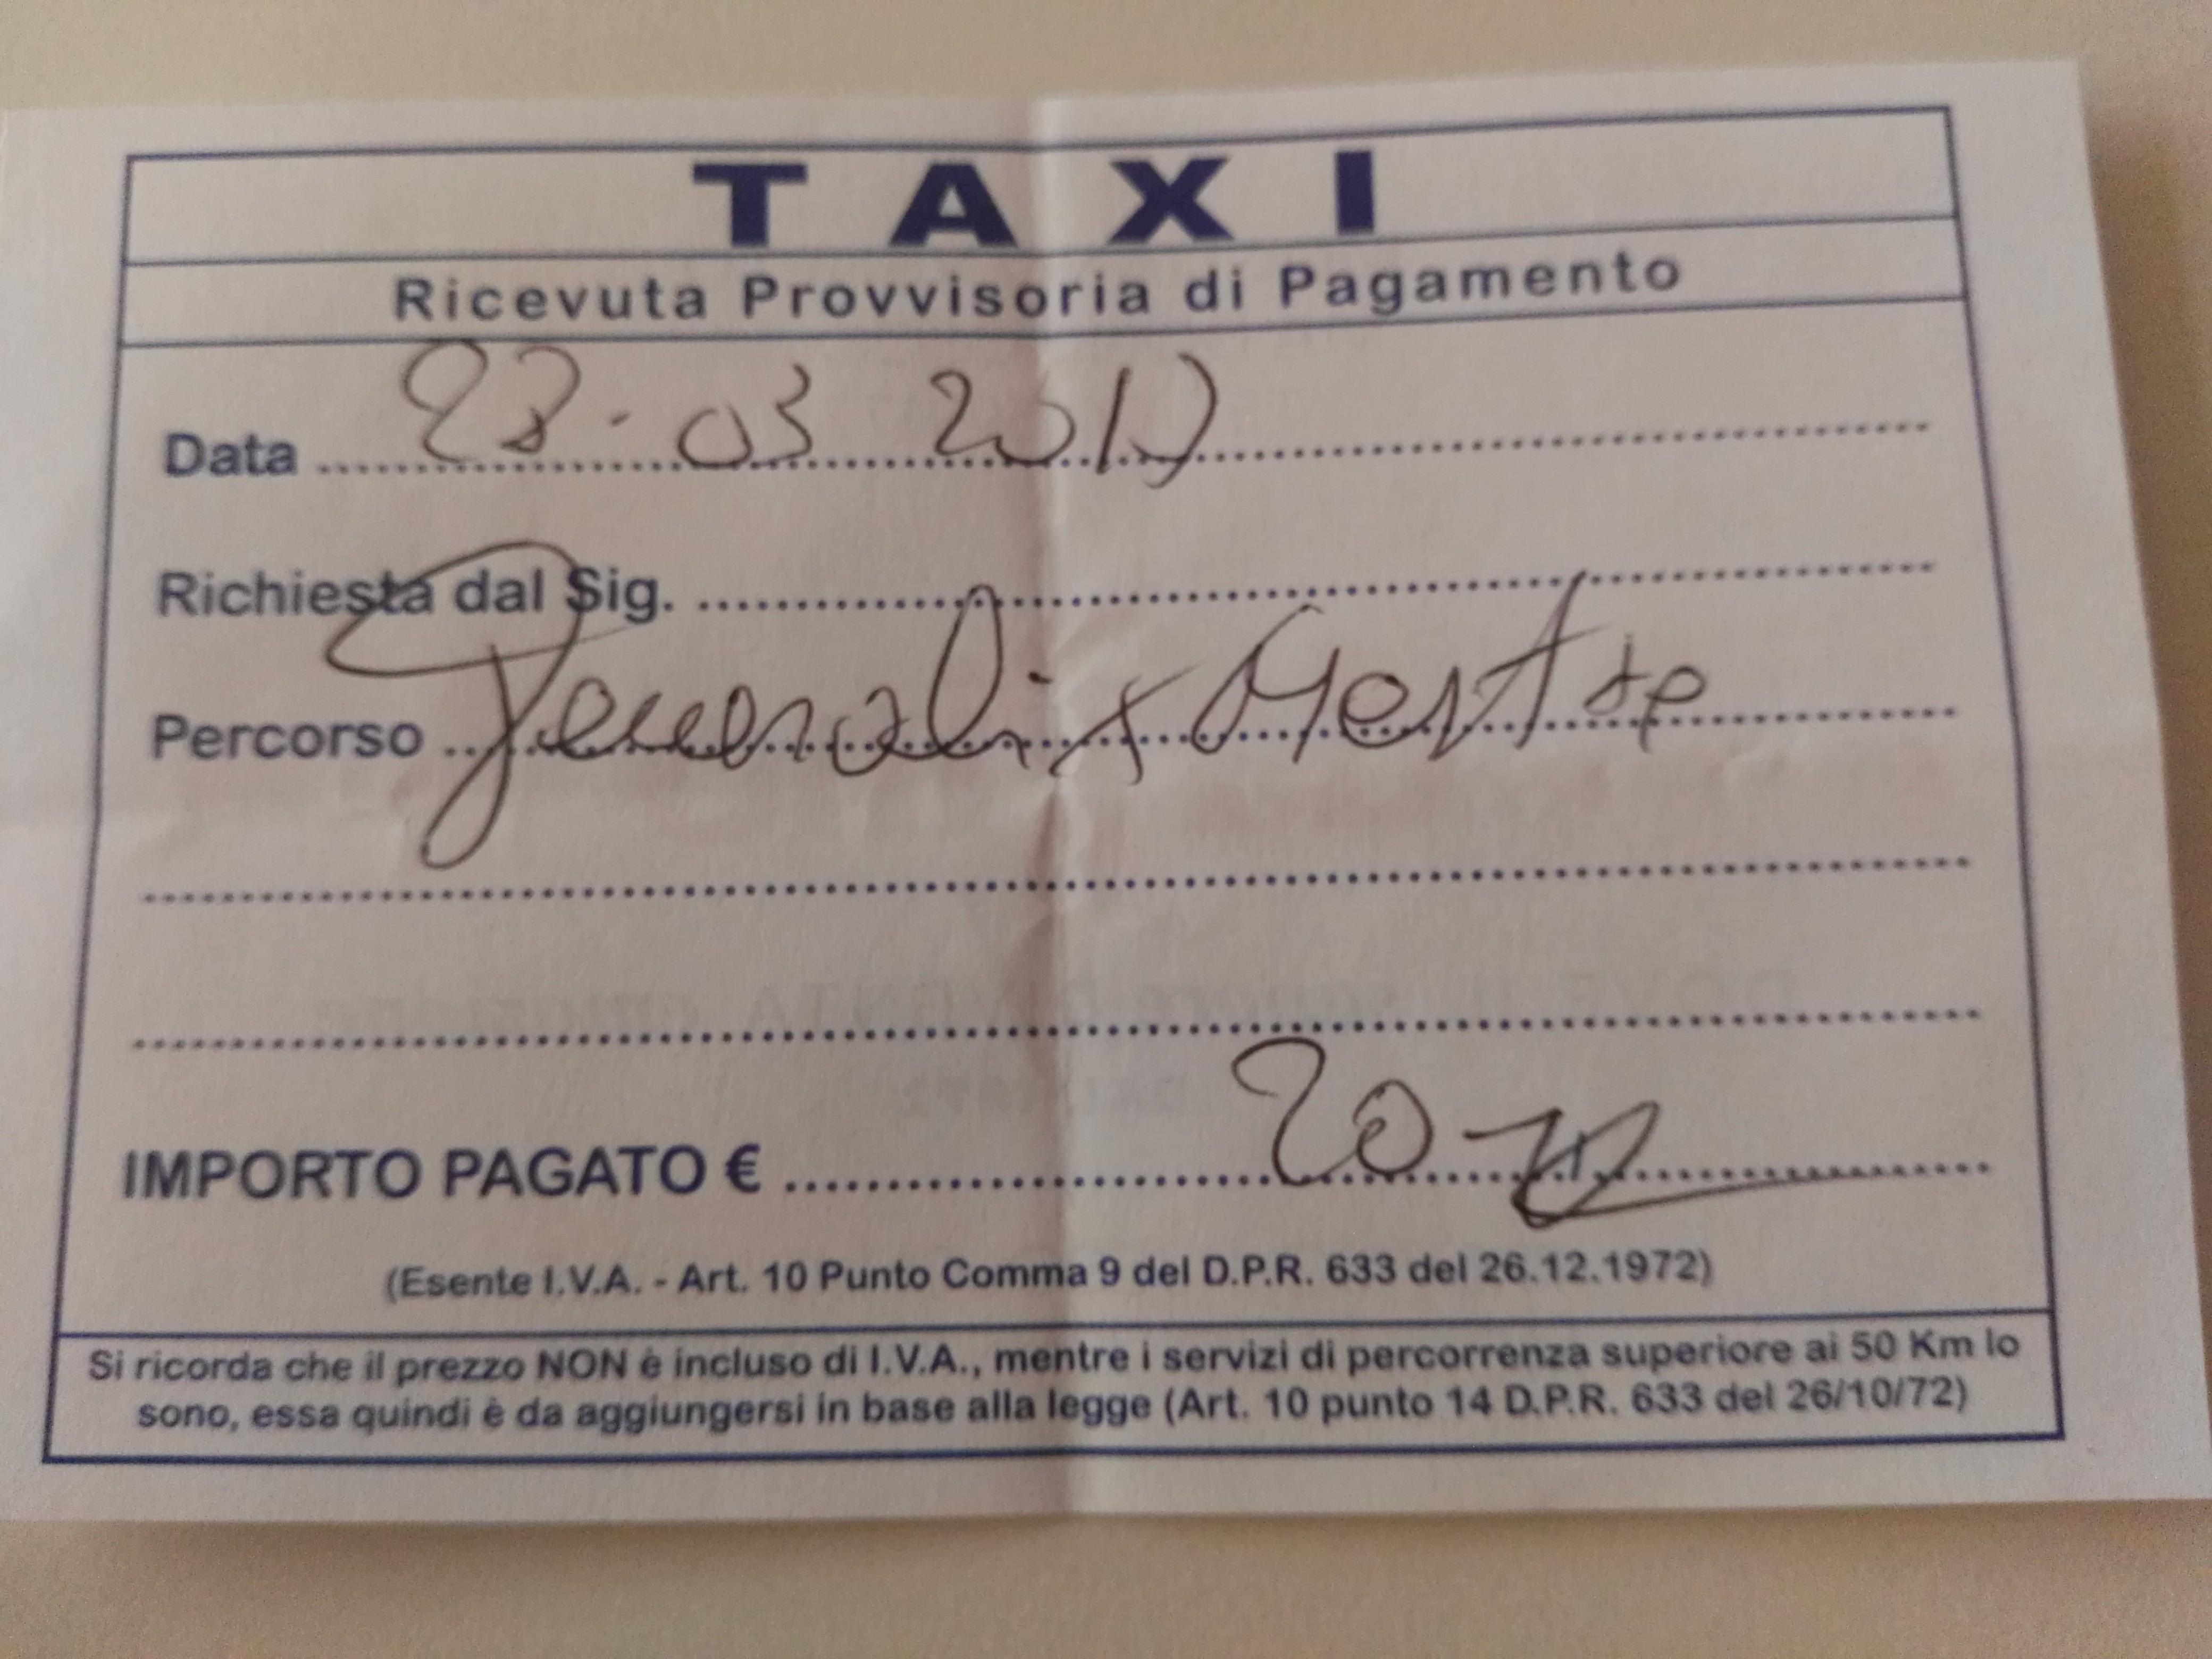 TAXI
Ricevuta Provvisoria di Pagamento
Data 28-03 2019
Richiesta dal Sig.
Percorso Generali x Mestre
IMPORTO PAGATO € 20
(Esente I.V.A. - Art. 10 Punto Comma 9 del D.P.R. 633 del 26.12.1972)
Si ricorda che il prezzo NON è incluso di I.V.A., mentre i servizi di percorrenza superiore ai 50 Km lo
sono, essa quindi è da aggiungersi in base alla legge (Art. 10 punto 14 D.P.R. 633 del 26/10/72)